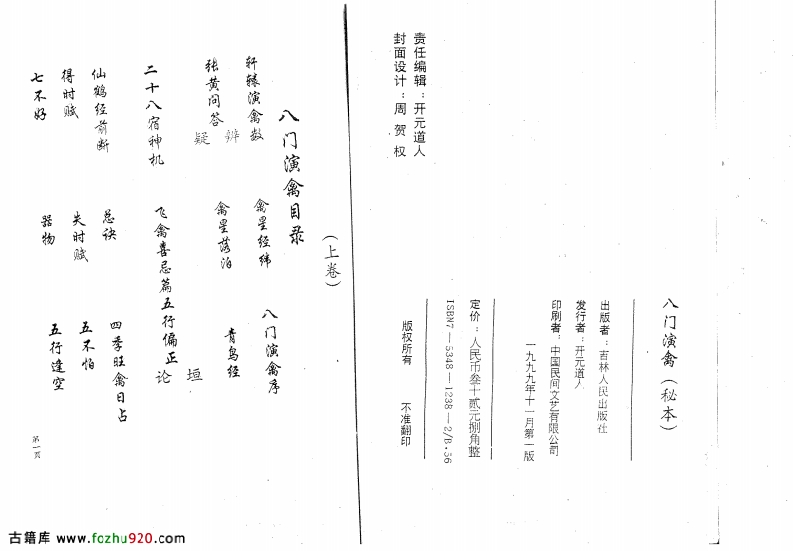 八门演禽（秘本）
出版者：吉林人民出版社
发行者：开元道人
印刷者：中国民间文艺有限公司
一九九九年十一月第一版
定价：人民币叁十贰元捌角整
ISBN7—5348—1238—2/B·56
版权所有 不准翻印
责任编辑：开元道人
封面设计：周贺权
（上卷）
八门演禽目录
轩辕演禽数 禽星经纬 八门演禽序
辨
张黄问答 禽星落泊 青鸟经
疑 垣
二十八宿神机 飞禽喜忌篇 五行偏正论
仙鹤经前断 总诀 四季旺禽日占
得时赋 失时赋 五不怕
七不好 器物 五行逢空
第一页
古籍库 www.fozhu920.com